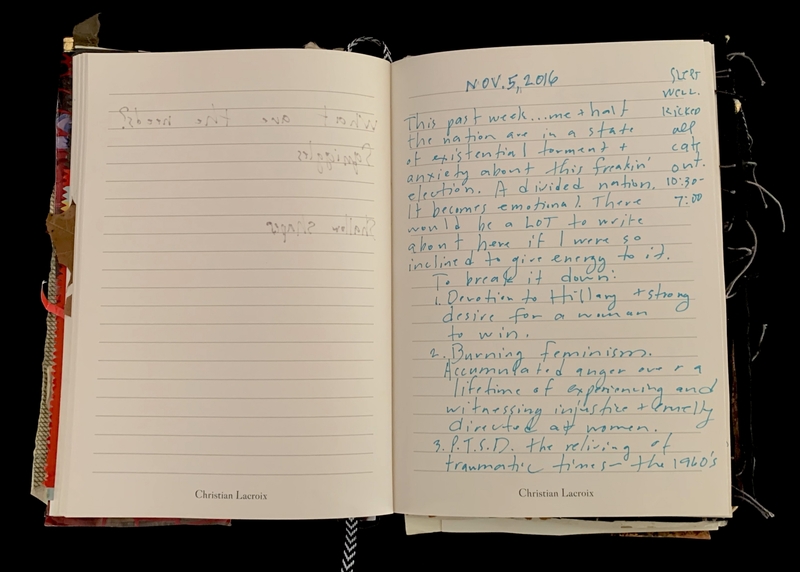 What are the needs?
Squiggles
Shallow
Christian Lacroix
NOV. 5, 2016
SLEPT
WELL.
Kicked
all
cats
out.
10:30-
7:00
This past week... me + half
the nation are in a state
of existential torment +
anxiety about this freakin'
election. A divided nation.
It becomes emotional. There
would be a LOT to write
about here if I were so
inclined to give energy to it.
To break it down:
1. Devotion to Hillary + strong
desire for a woman
to win.
2. Burning feminism.
Accumulated anger over a
lifetime of experiencing and
witnessing injustice + cruelty
directed at women.
3. P.T.S.D. the reliving of
traumatic times— the 1960's
Christian Lacroix